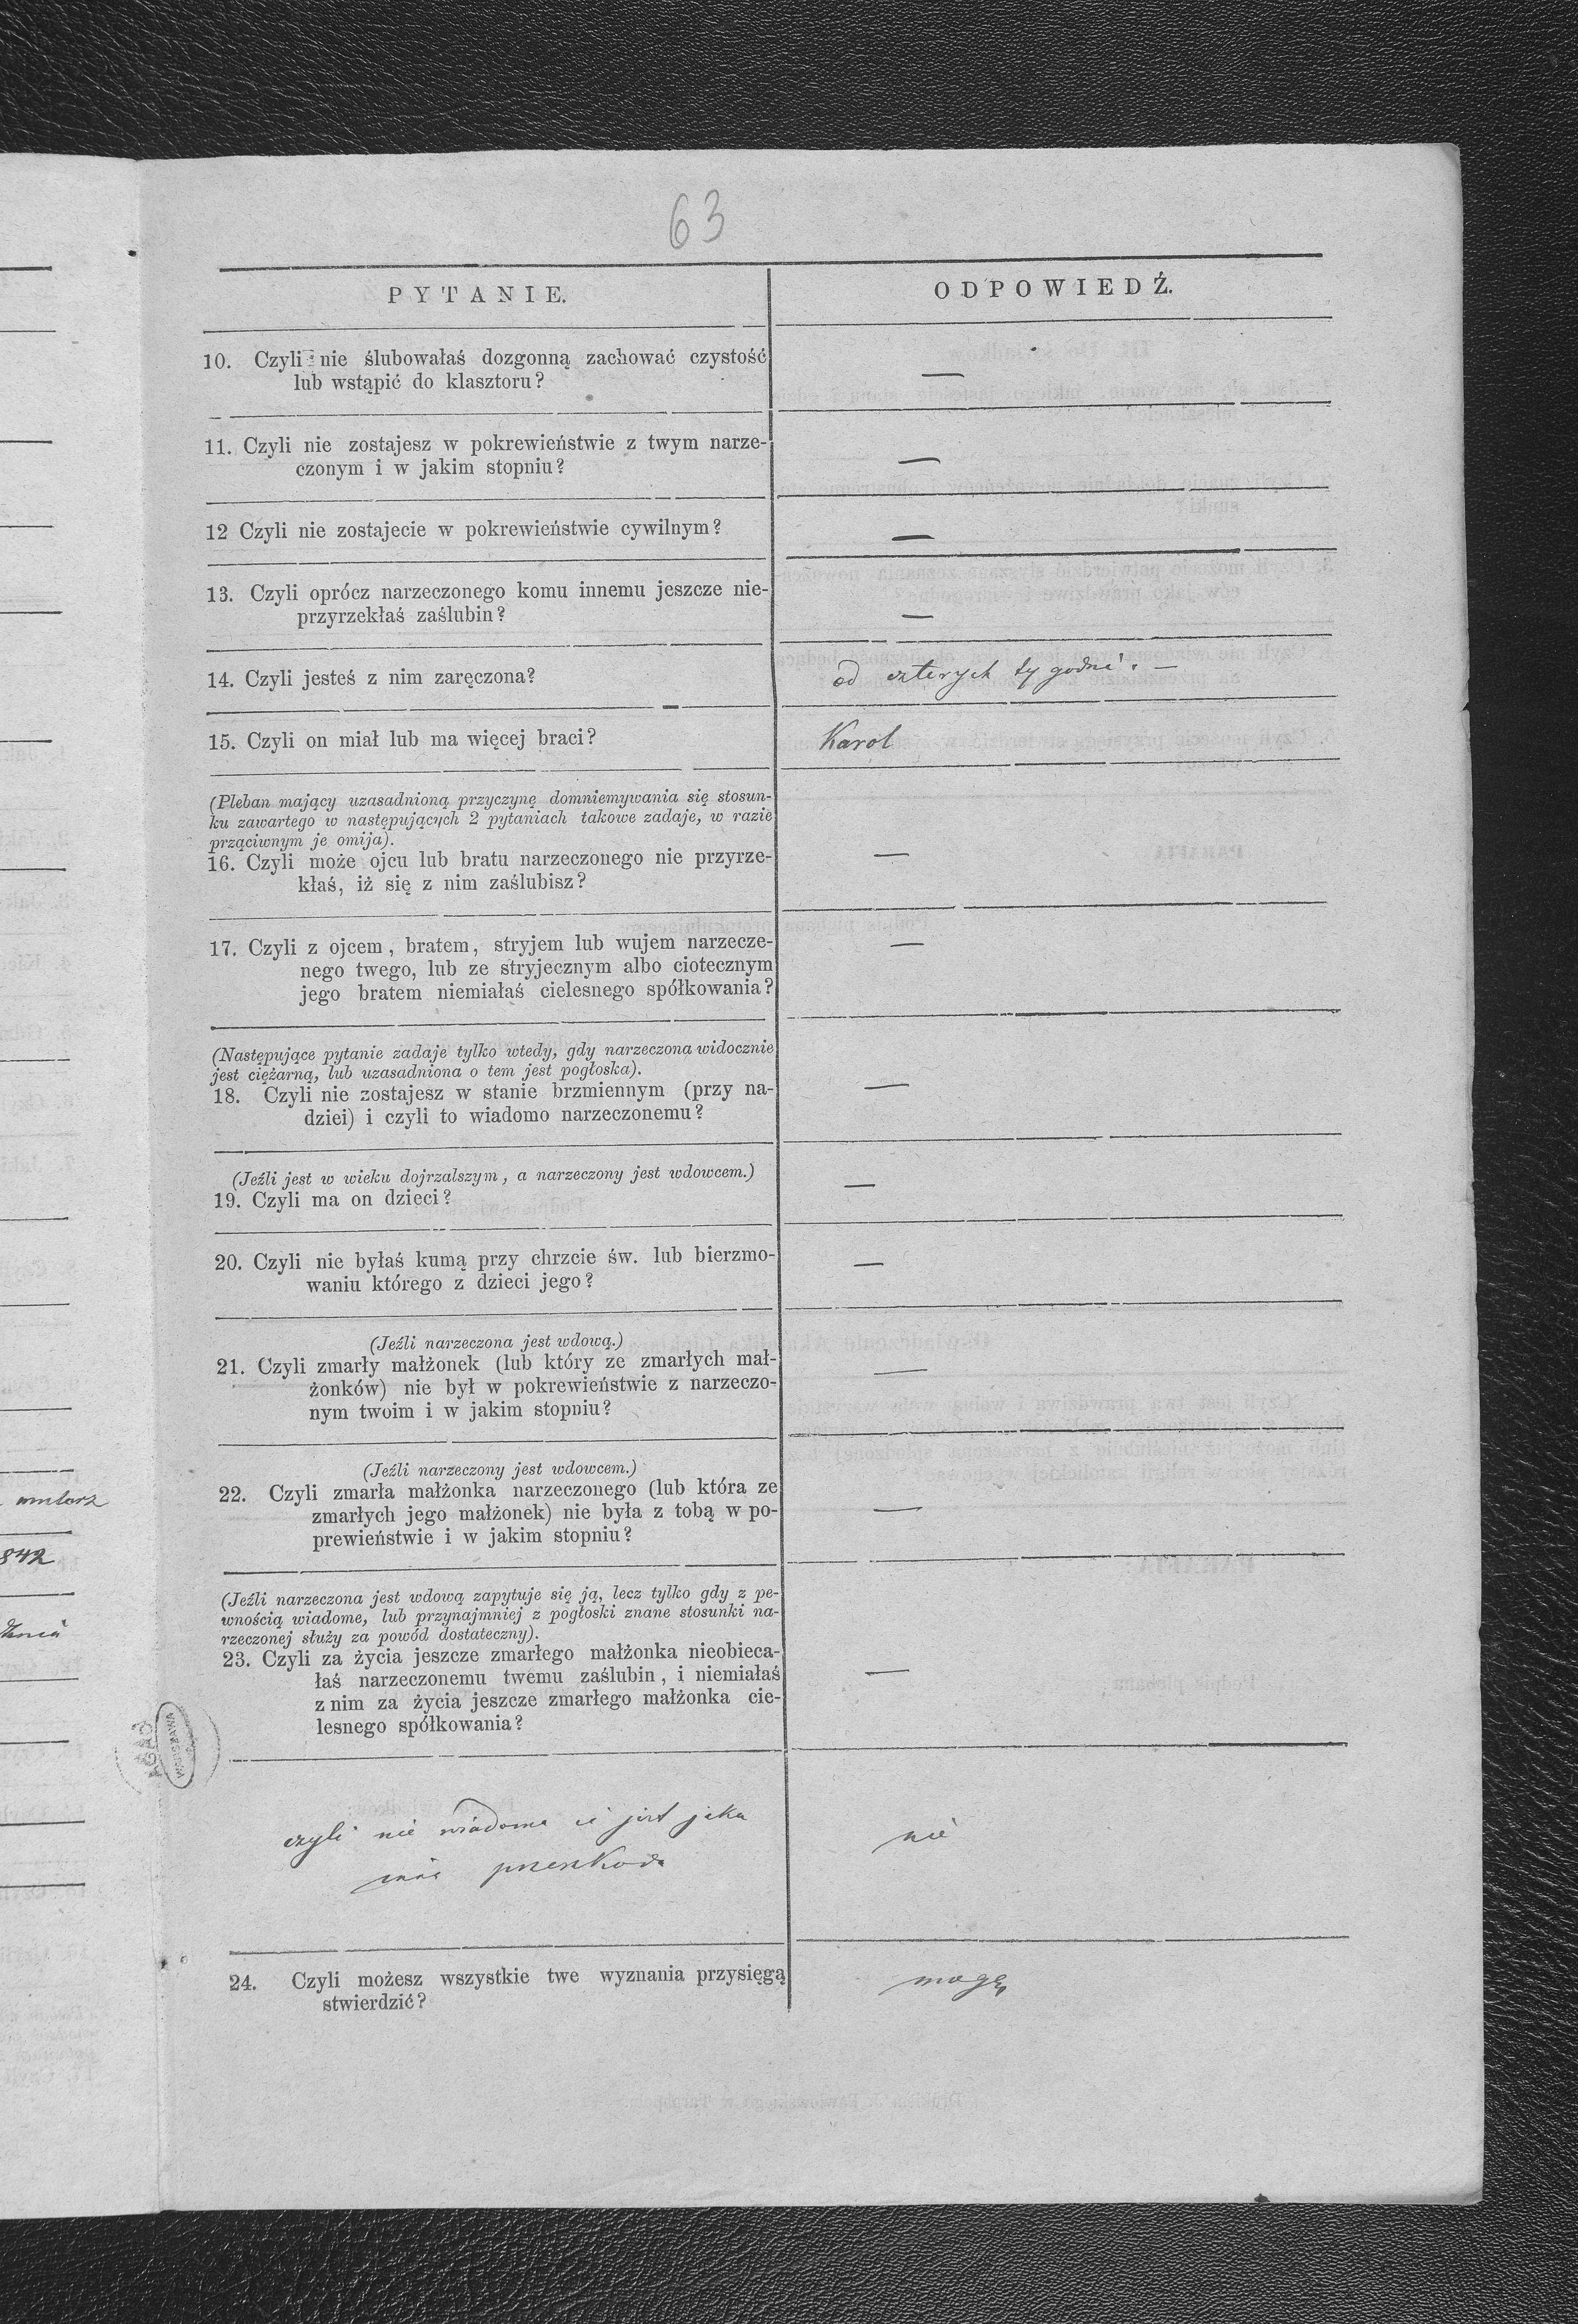 63
PYTANIE.
ODPOWIEDŹ.
10. Czyli nie ślubowałaś dozgonną zachować czystość
lub wstąpić do klasztoru?
—
11. Czyli nie zostajesz w pokrewieństwie z twym narze-
czonym i w jakim stopniu?
—
12 Czyli nie zostajecie w pokrewieństwie cywilnym?
—
13. Czyli oprócz narzeczonego komu innemu jeszcze nie-
przyrzekłaś zaślubin?
—
14. Czyli jesteś z nim zaręczona?
od czterych tygodni. —
15. Czyli on miał lub ma więcej braci?
Karol
(Pleban mający uzasadnioną przyczynę domniemywania się stosun-
ku zawartego w następujących 2 pytaniach takowe zadaje, w razie
prząciwnym je omija).
16. Czyli może ojcu lub bratu narzeczonego nie przyrze-
kłaś, iż się z nim zaślubisz?
—
17. Czyli z ojcem, bratem, stryjem lub wujem narzecze-
nego twego, lub ze stryjecznym albo ciotecznym
jego bratem niemiałaś cielesnego spółkowania?
—
(Następujące pytanie zadaje tylko wtedy, gdy narzeczona widocznie
jest ciężarną, lub uzasadniona o tem jest pogłoska).
18. Czyli nie zostajesz w stanie brzmiennym (przy na-
dziei) i czyli to wiadomo narzeczonemu?
—
(Jeźli jest w wieku dojrzalszym, a narzeczony jest wdowcem.)
19. Czyli ma on dzieci?
—
20. Czyli nie byłaś kumą przy chrzcie św. lub bierzmo-
waniu którego z dzieci jego?
—
(Jeźli narzeczona jest wdową.)
21. Czyli zmarły małżonek (lub który ze zmarłych mał-
żonków) nie był w pokrewieństwie z narzeczo-
nym twoim i w jakim stopniu?
—
(Jeźli narzeczony jest wdowcem.)
22. Czyli zmarła małżonka narzeczonego (lub która ze
zmarłych jego małżonek) nie była z tobą w po-
prewieństwie i w jakim stopniu?
—
(Jeźli narzeczona jest wdową zapytuje się ją, lecz tylko gdy z pe-
wnością wiadome, lub przynajmniej z pogłoski znane stosunki na-
rzeczonej służy za powód dostateczny).
23. Czyli za życia jeszcze zmarłego małżonka nieobieca-
łaś narzeczonemu twemu zaślubin, i niemiałaś
z nim za życia jeszcze zmarłego małżonka cie-
lesnego spółkowania?
—
AGAD
WARSZAWA
czyli nie wiadomo iż jest jaka
inna przeszkoda
nie
24. Czyli możesz wszystkie twe wyznania przysięgą
stwierdzić?
mogę
842